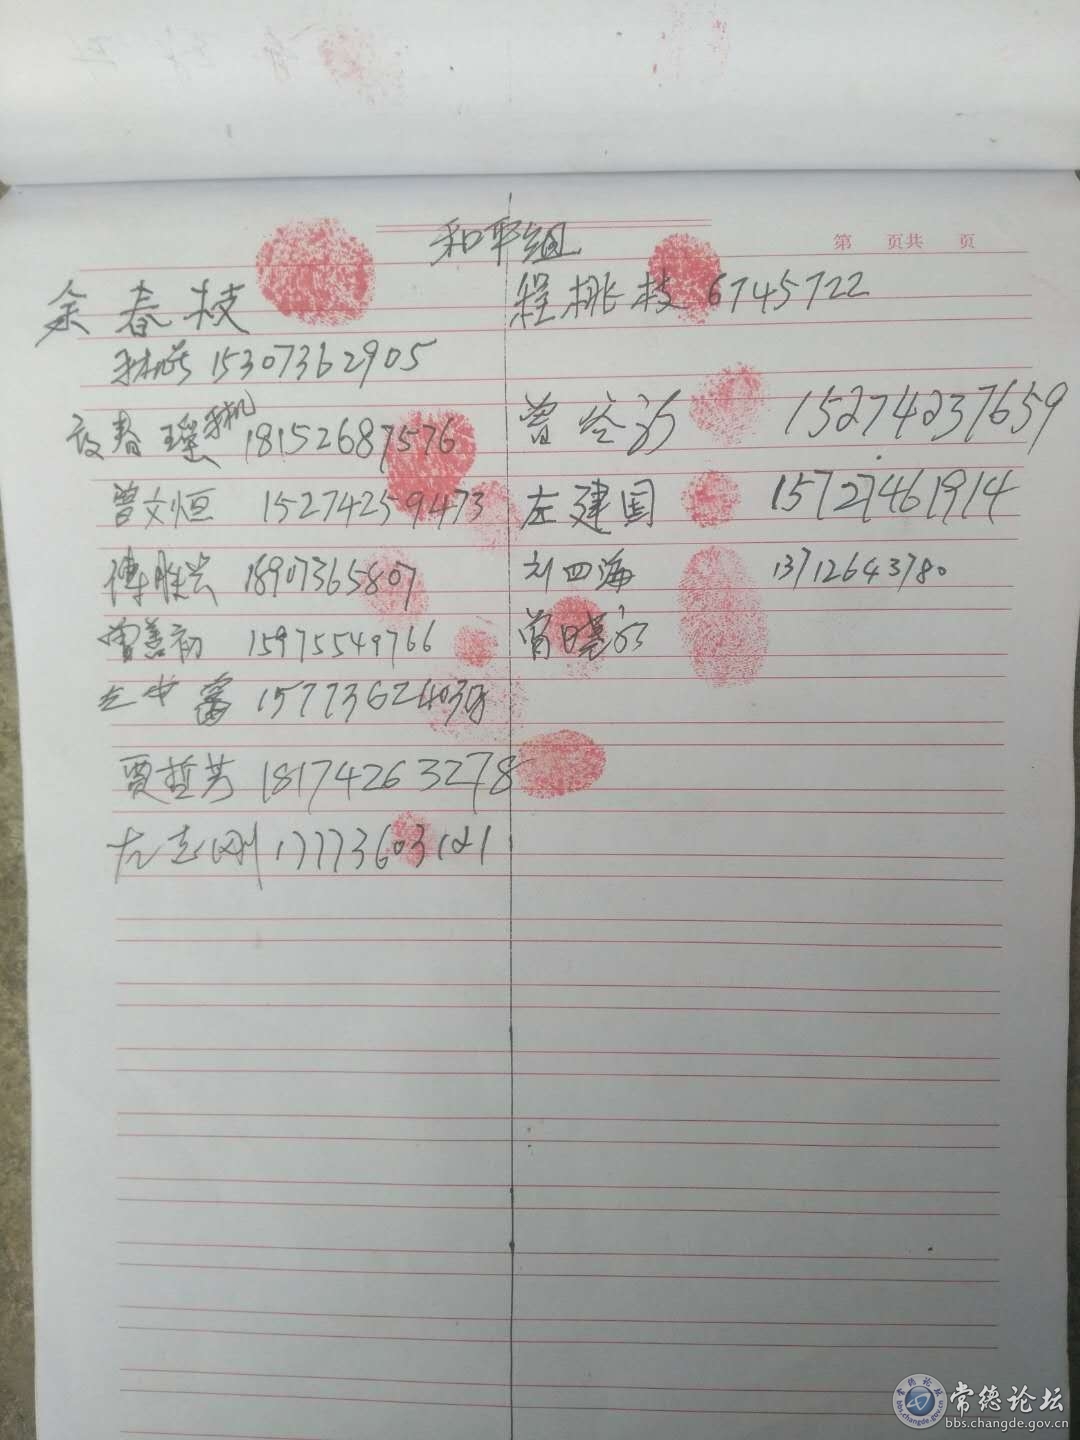 和平组
第 页共 页
余春枝
手机 15307362905
春 手机 18152687576
曾文恒 15274259473
傅胜兴 18907365807
曾善初 15975549766
1577362403
贾哲芳 18174263278
左志刚 17773603121
程桃枝 6745722
曾 15274237659
左建国 15727461914
刘四海 13712643780
曾晓
常德论坛
bbs.changde.gov.cn